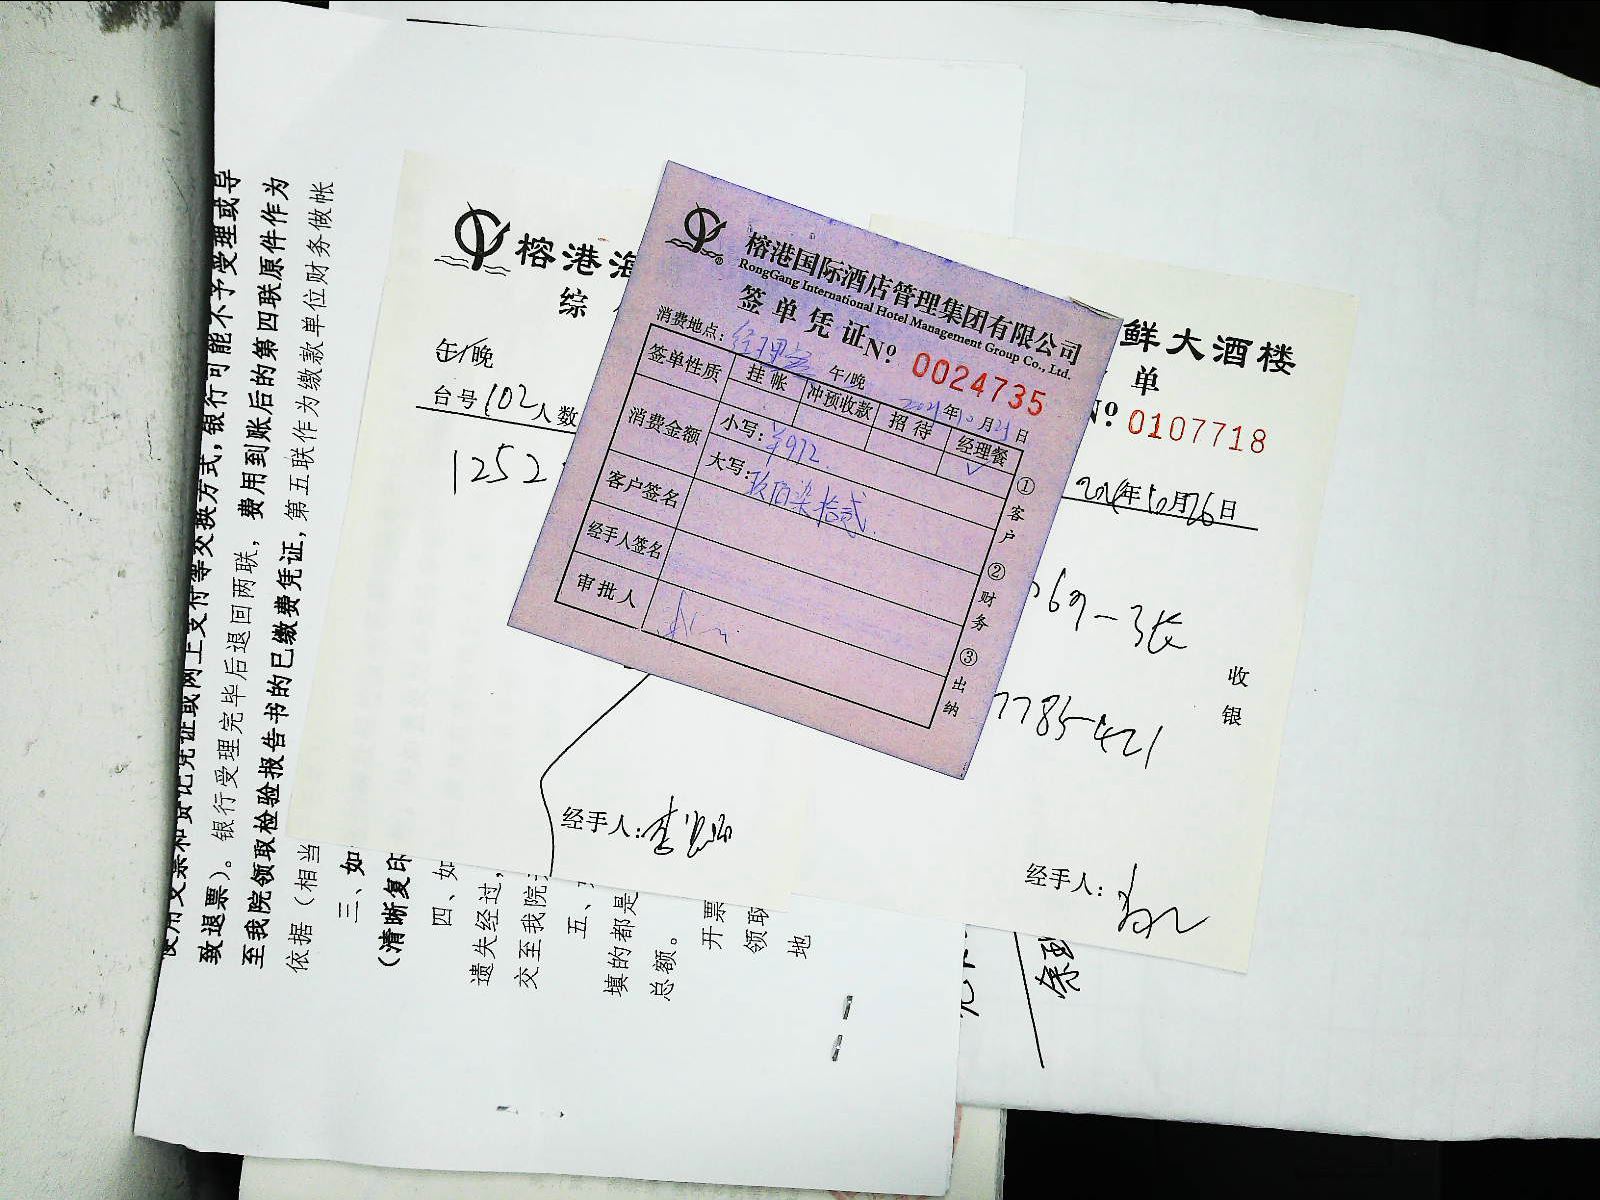 榕港国际酒店管理集团有限公司
RongGang International Hotel Management Group Co., Ltd.
签单凭证 № 0024735
消费地点：经理室 午/晚 2021年10月25日
签单性质 挂帐 冲预收款 招待 经理餐
✓
消费金额 小写：¥972.
大写：玖佰柒拾贰
客户签名
经手人签名
审批人
①客户 ②财务 ③出纳
榕港海
综
午/晚
台号 102 人数
1252
经手人：李
鲜大酒楼
单
№ 0107718
年10月26日
69-3张
7785-421
收银
经手人：
使用支票和贷记凭证或网上支付等交换方式，银行可能不予受理或导
致退票）。银行受理完毕后退回两联，费用到账后的第四联原件作为
至我院领取检验报告书的已缴费凭证，第五联作为缴款单位财务做帐
依据（相当
三、如
（清晰复印
四、如
遗失经过，
交至我院
五、
填的都是
总额。
开票
领取
地